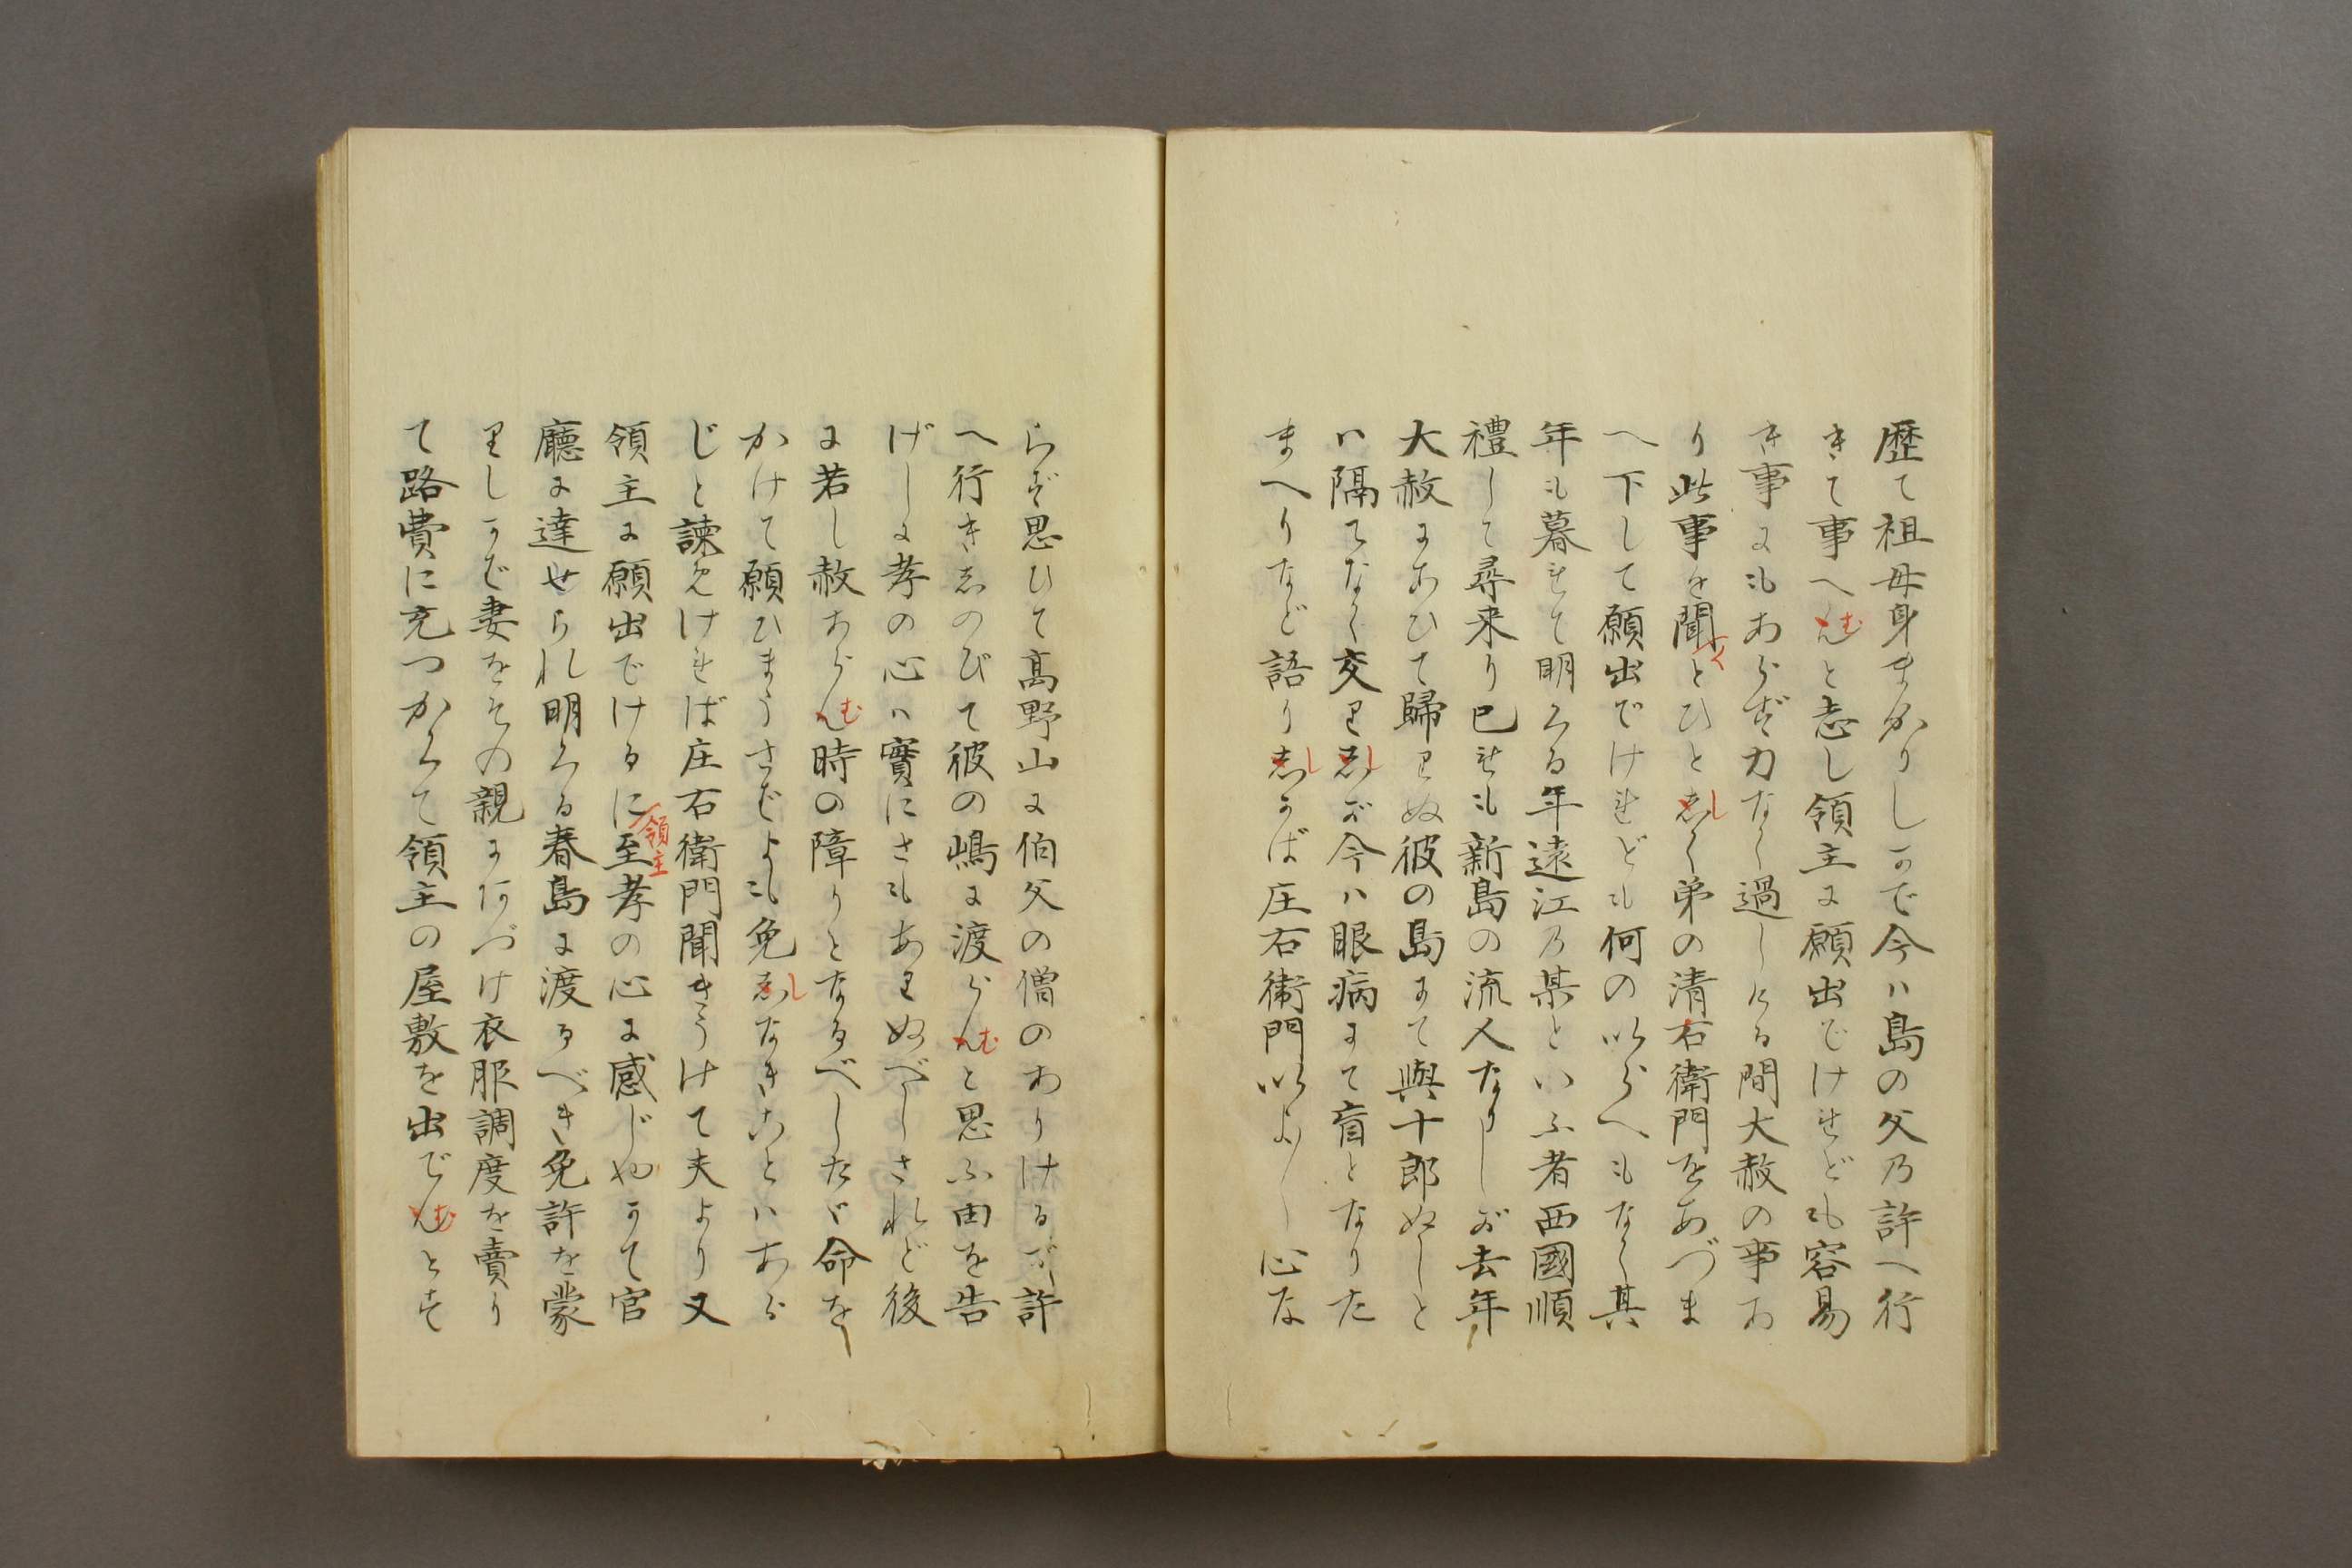 歴て祖母身まかりしかで今ハ島の父乃許へ行
きて事へんむと志し領主に願出でけれども容易
き事にもあらず力なく過しける間大赦の事あ
り此事を聞くとひとしく弟の清右衛門をあづま
へ下して願出でけれども何のいらへもなく其
年も暮れて明くる年遠江乃某といふ者西國順
禮して尋来り已れも新島の流人なりしが去年
大赦にあひて歸りぬ彼の島にて與十郎ぬしと
ハ隔てなく交りしが今ハ眼病にて盲となりた
まへりなど語りしかば庄右衛門いよ〳〵心な
らず思ひて高野山に伯父の僧のありけるが許
へ行きしのびて彼の嶋に渡らんむと思ふ由を告
げしに孝の心ハ實にさもありぬべしされど後
に若し赦あらんむ時の障りとなるべしたゞ命を
かけて願ひまうさばよも免しなきことハあら
じと諫めければ庄右衛門聞きうけて夫より又
領主に願出でけるに領主至孝の心に感じやがて官
廳に達せられ明くる春島に渡るべき免許を蒙
りしかば妻をその親にあづけ衣服調度を賣り
て路費に充つかくて領主の屋敷を出でんむとす